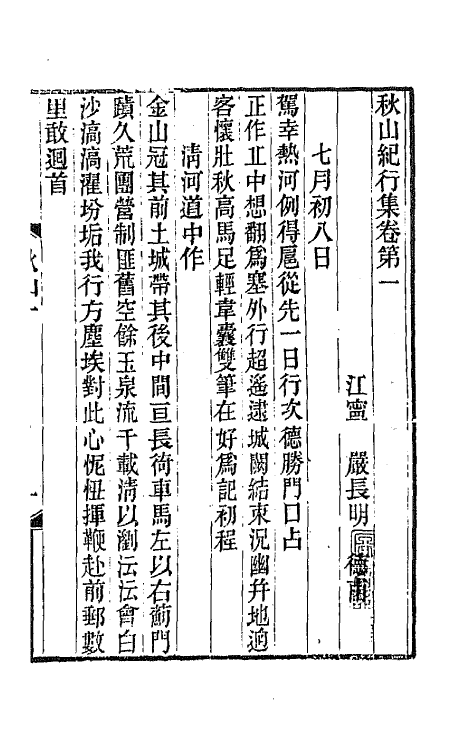 秋山紀行集卷第一
江寧 嚴長明 德甫
七月初八日
駕幸熱河例得扈從先一日行次德勝門口占
正作丘中想翻爲塞外行超遙違城闕結束況幽幷地迥
客懷壯秋高馬足輕韋囊雙筆在好爲記初程
淸河道中作
金山冠其前土城帶其後中間亘長衖車馬左以右薊門
蹟久荒團營制匪舊空餘玉泉流千載淸以瀏沄沄會白
沙滈滈濯坋垢我行方塵埃對此心怩忸揮鞭赴前郵數
里敢迴首
秋山一
一